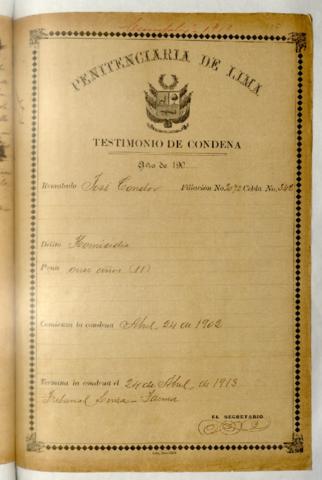 PENITENCIARIA DE LIMA
TESTIMONIO DE CONDENA
Año de 190
Rematado José Condor Filiación No. 2072 Celda No. 348
Delito Homicidio
Pena once años (11)
Comienza la condena Abril 24 de 1902
Termina la condena el 24 de Abril de 1913
Tribunal
EL SECRETARIO